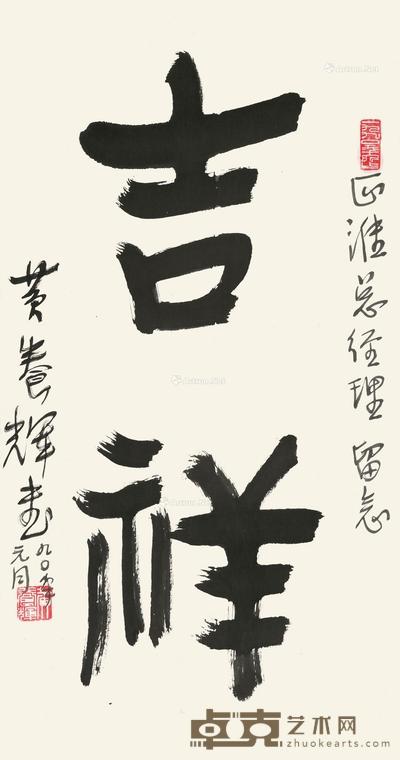 正淮总经理 留念
吉祥
黄養輝书
九〇年
元月
卓克艺术网
zhuokearts.com
Artron.Net